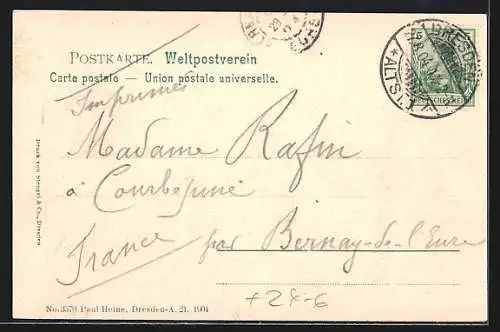 POSTKARTE. Weltpostverein
Carte postale — Union postale universelle.
Imprimés
Madame Rafin
à Courbejune
par Bernay-de-l'Eure
France
Druck von Stengel & Co., Dresden
No. 3570 Paul Heine, Dresden-A. 21. 1904
DRESDEN
* ALTST.
5